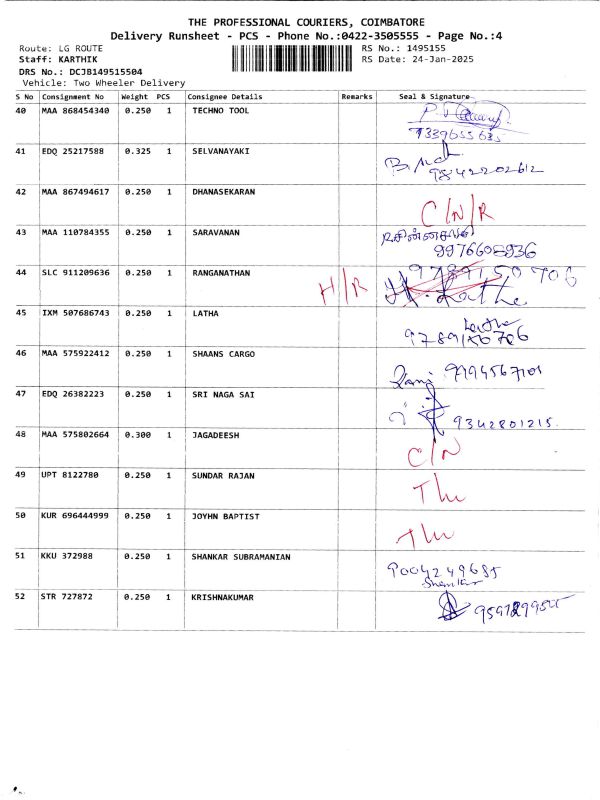 THE PROFESSIONAL COURIERS, COIMBATORE
Delivery Runsheet - PCS - Phone No.:0422-3505555 - Page No.:4
Route: LG ROUTE RS No.: 1495155
Staff: KARTHIK RS Date: 24-Jan-2025
DRS No.: DCJB149515504
Vehicle: Two Wheeler Delivery
S No Consignment No Weight PCS Consignee Details Remarks Seal & Signature
40 MAA 868454340 0.250 1 TECHNO TOOL
9339655635
41 EDQ 25217588 0.325 1 SELVANAYAKI
9842202612
42 MAA 867494617 0.250 1 DHANASEKARAN
C/N/R
43 MAA 110784355 0.250 1 SARAVANAN
9976608936
44 SLC 911209636 0.250 1 RANGANATHAN
H/R 9789150706
45 IXM 507686743 0.250 1 LATHA Latha
9789150706
46 MAA 575922412 0.250 1 SHAANS CARGO
47 EDQ 26382223 0.250 1 SRI NAGA SAI
9342801215
48 MAA 575802664 0.300 1 JAGADEESH
C/N
49 UPT 8122780 0.250 1 SUNDAR RAJAN
50 KUR 696444999 0.250 1 JOYHN BAPTIST
51 KKU 372988 0.250 1 SHANKAR SUBRAMANIAN
9004249685
Shankar
52 STR 727872 0.250 1 KRISHNAKUMAR